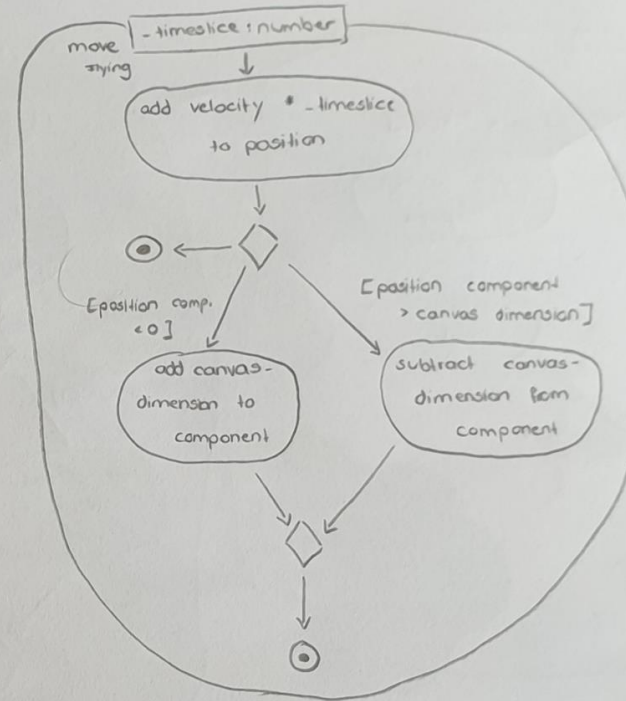 _timeslice : number
move
add velocity * _timeslice
to position
[position comp.
< 0]
[position component
> canvas dimension]
add canvas-
dimension to
component
subtract canvas-
dimension from
component